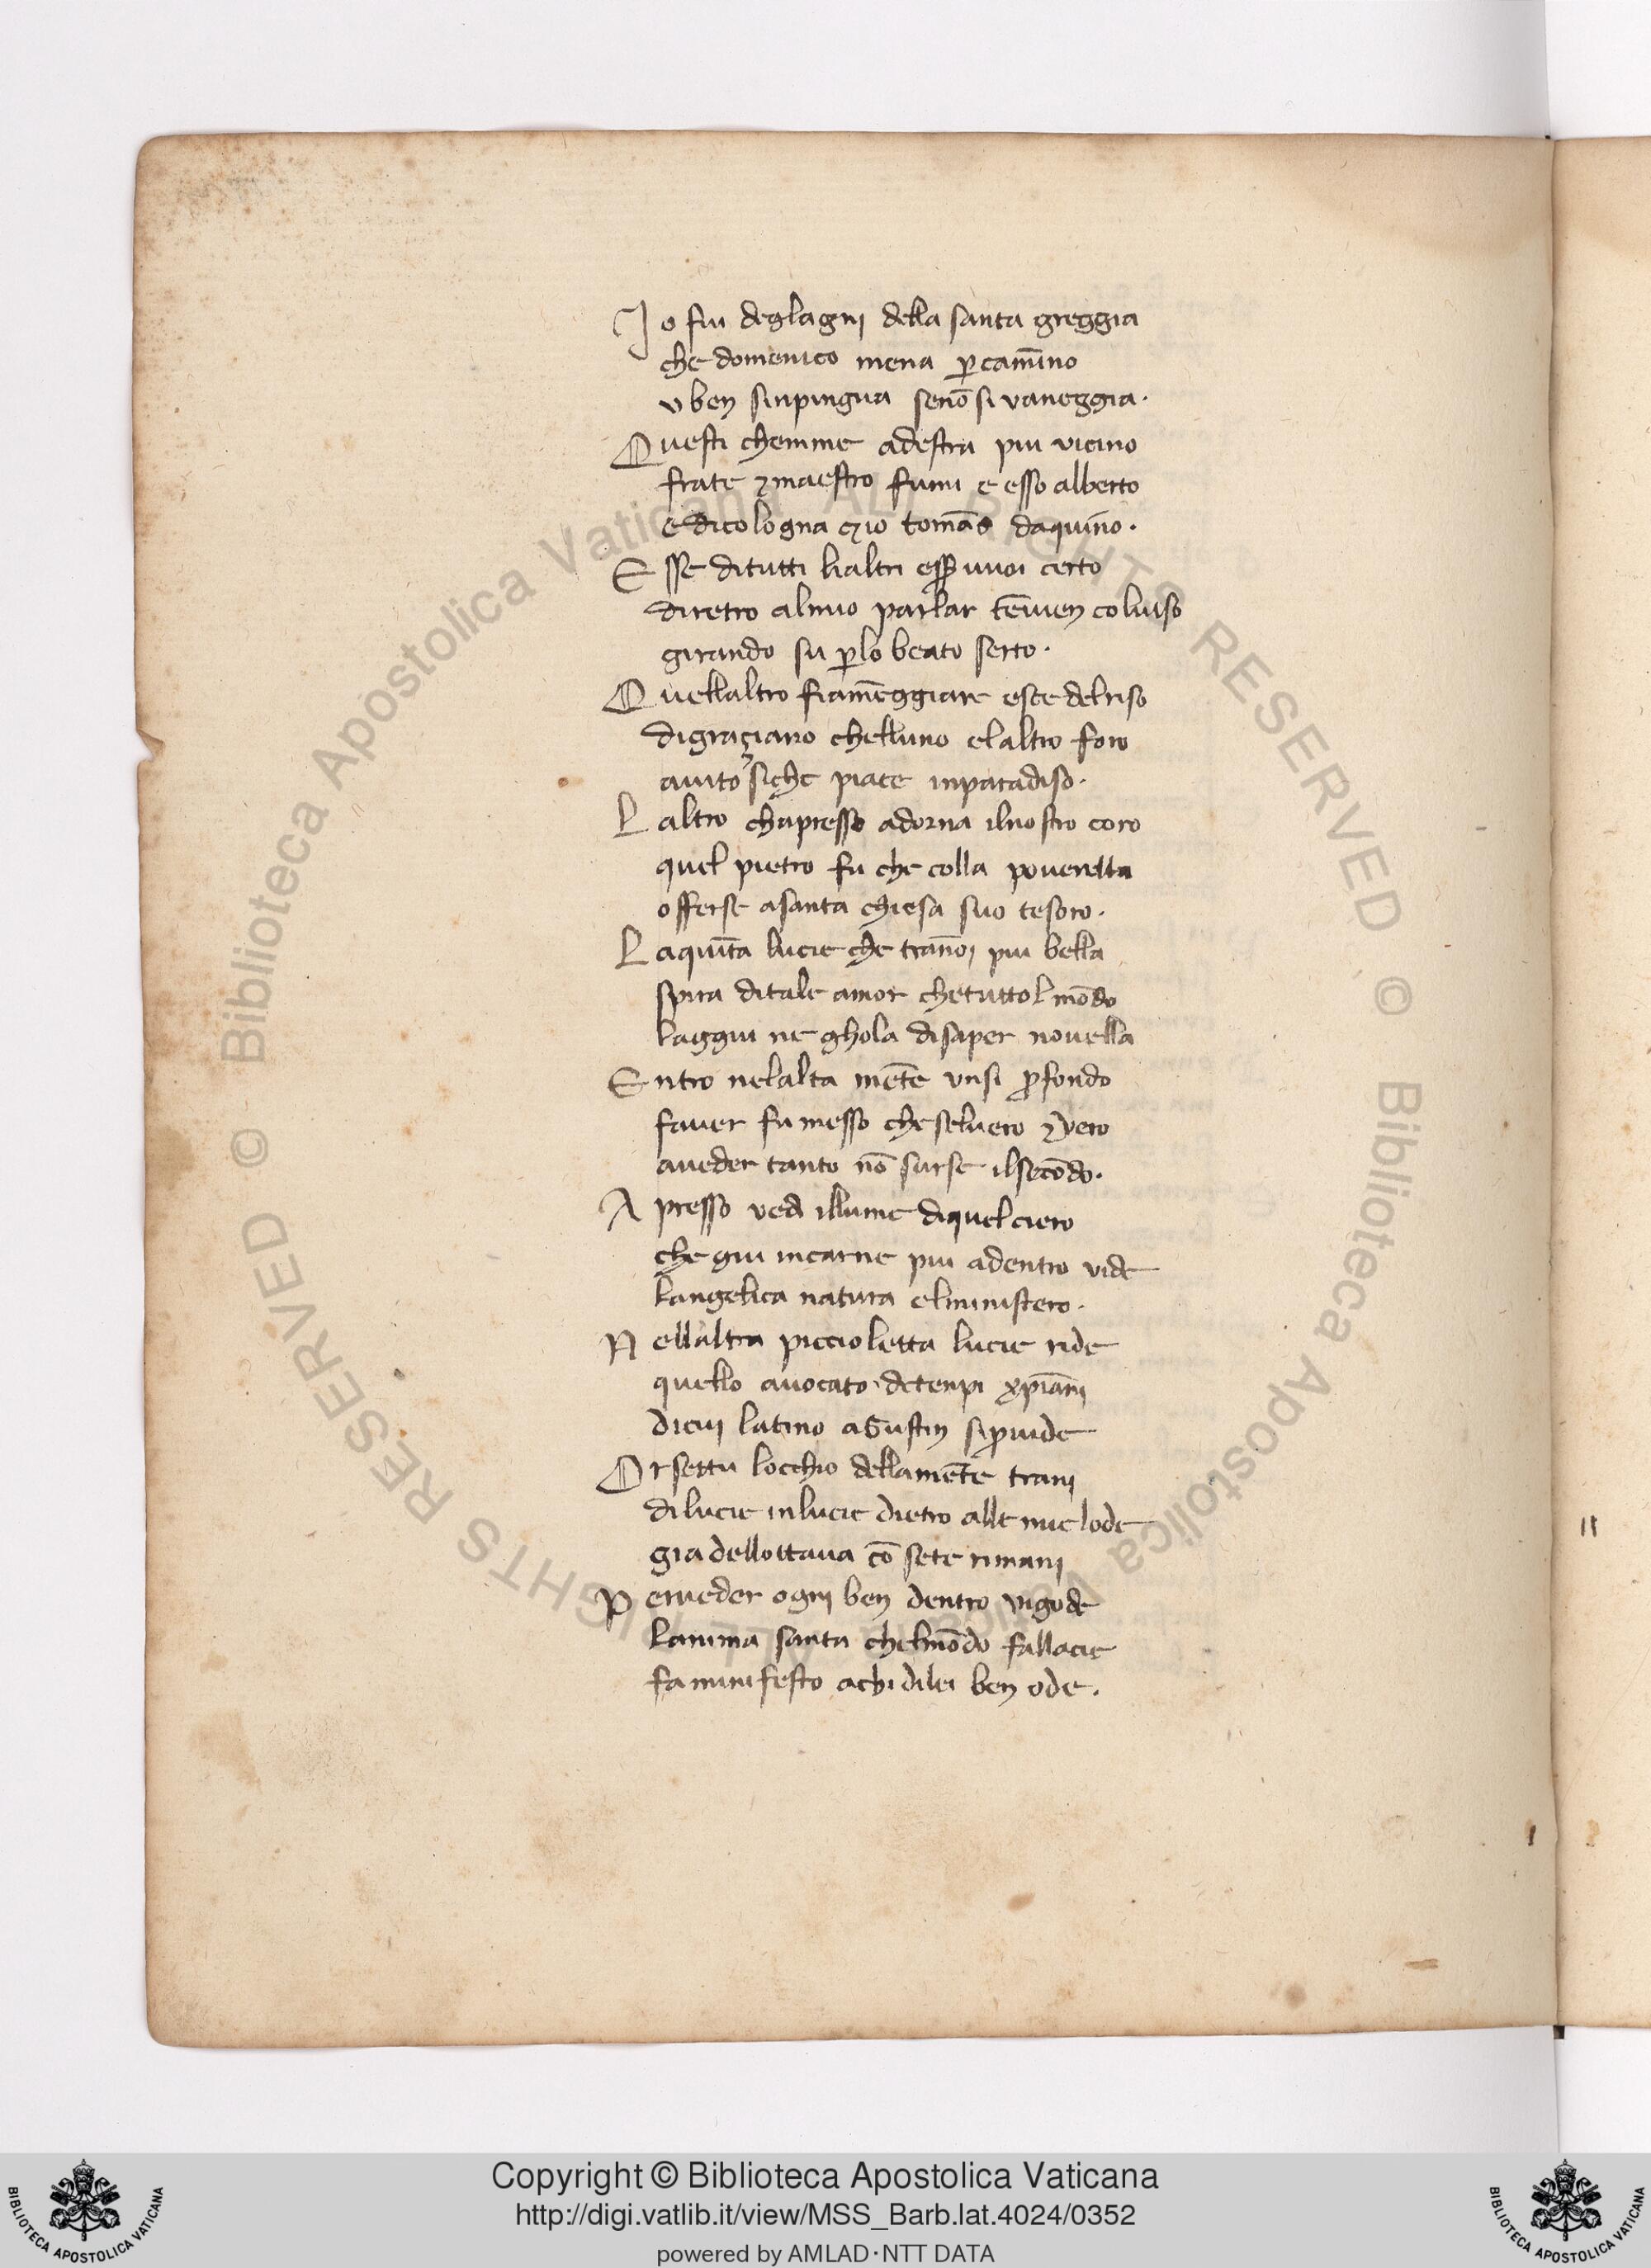 Io fui deglagni della santa greggia
che domenico mena ꝑ camīno
v ben sinpingua senō si vaneggia·
Questi chemme adestra piu vicino
frate ⁊ maestro fumi e esso alberto
e di cologna ⁊ io tomās daquīno·
Esse di tutti lialtri esser vuoi certo
diretro almio parlar tēvien col viso
girando su ꝑlo beato serto·
Quellaltro fiamēggiare esce del riso
di graçiano chelluno elaltro foro
aiuto siche piace inparadiso·
Laltro chapresso adorna ilnostro coro
quel pietro fu che colla poverella
offerse asanta chiesa suo tesoro·
La quīta lucie che tranoi piu bella
spira ditale amor chetuttol mōdo
laggiu ne ghola disaper novella
Entro nelalta mēte vnsi ꝓfondo
saver fu messo che selvero ⁊ vero
aveder tanto nō surse ilsecōdo·
Apresso vedi illume diquel ciero
che giu incarne piu adentro vide
langelica natura elministero·
Nellaltra piccioletta lucie ride
quello avocato detenpi xp̄iani
dicui latino agustin si ꝓvide
Orsettu locchio dellamēte trani
di lucie inlucie dietro alle mie lode
gia dellottava cō sete rimani
Perveder ogni ben dentro vi gode
lanima santa chelmōdo fallacie
fa manifesto achi dilei ben ode·
11
Copyright © Biblioteca Apostolica Vaticana
http://digi.vatlib.it/view/MSS_Barb.lat.4024/0352
powered by AMLAD·NTT DATA
BIBLIOTECA APOSTOLICA VATICANA
BIBLIOTECA APOSTOLICA VATICANA
© Biblioteca Apostolica Vaticana ALL RIGHTS RESERVED
© Biblioteca Apostolica Vaticana ALL RIGHTS RESERVED